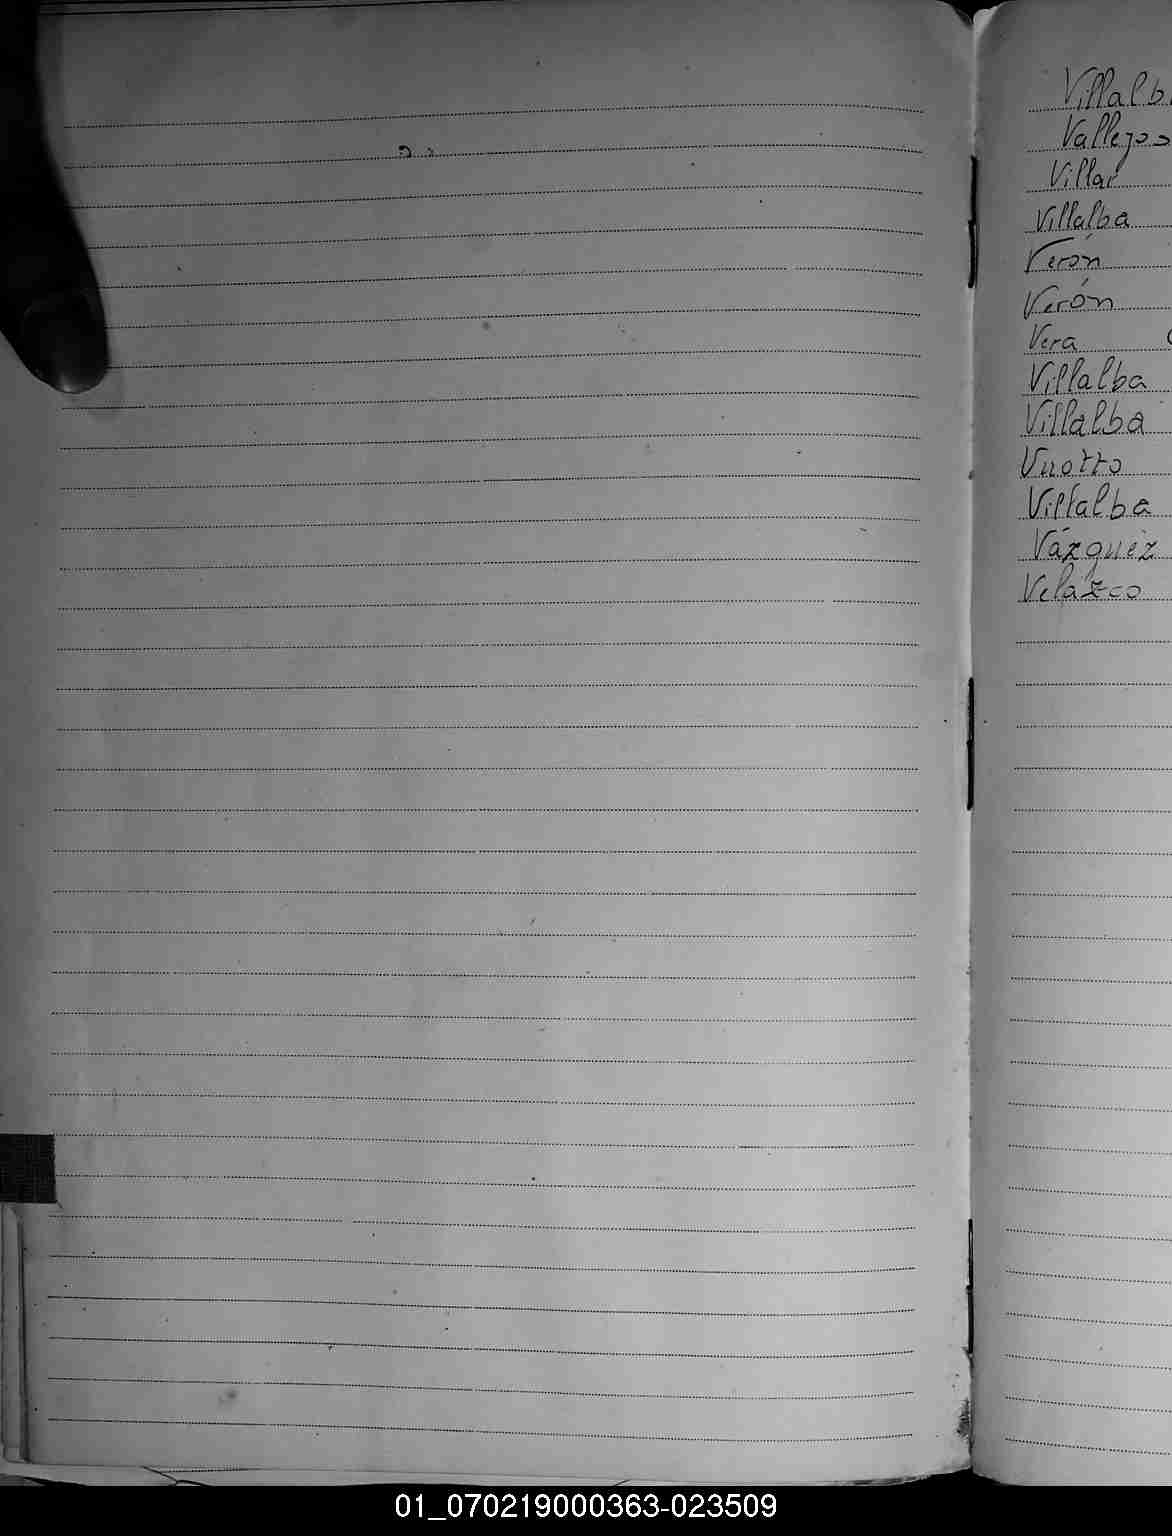 Villalb
Vallejos
Villar
Villalba
Verón
Verón
Vera
Villalba
Villalba
Vuotto
Villalba
Vázquez
Velázco
01_070219000363-023509